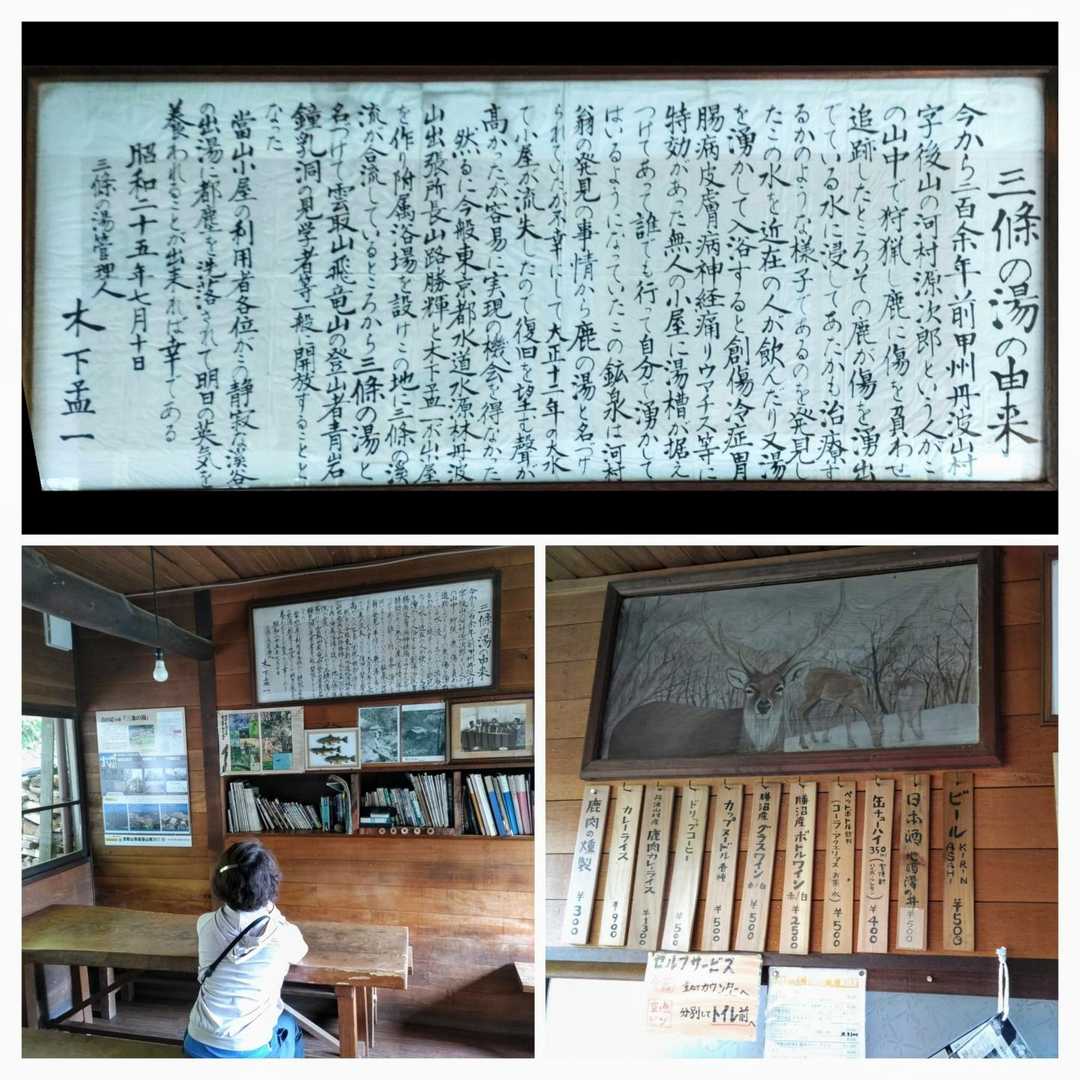 三條の湯の由来
今から二百余年前甲州丹波山村
字後山の河村源次郎という人がこ
の山中で狩猟し鹿に傷を負わせ
追跡したところその鹿が傷を湧出
でている水に浸してあたかも治療す
るかのような様子であるのを発見し
たこの水を近在の人が飲んたり又湯
を湧かして入浴すると創傷冷症胃
腸病皮膚病神経痛リウマチス等に
特効があった無人の小屋に湯槽が据え
つけてあって誰でも行って自分で湧かして
はいるようになっていたこの鉱泉は河村
翁の発見の事情から鹿の湯と名づけ
られていたが不幸にして大正十二年の大水
て小屋が流失したので復旧を望む聲が
高かったが容易に実現の機会を得なかった
然るに今般東京都水道水源林丹波
山出張所長山路勝輝と木下孟一が山屋
を作り附属浴場を設けこの地に三條の溪
流が合流しているところから三條の湯と
名つけて雲取山飛竜山の登山者青岩
鐘乳洞の見学者等一般に開放することと
なった
當山小屋の利用者各位がこの静寂な溪谷
の出湯に都塵を洗落されて明日の英気を
養われることが出来れば幸である
昭和二十五年七月十日
三條の湯管理人
木下孟一
三條の湯の由来
木下孟一
ビール KIRIN ASAHI ¥500
日本酒 地酒澤の井 ¥500
缶チューハイ 350ml ¥400
ペットボトル飲料 コーラ アクエリアス お茶 水 ¥500
勝沼産 ボトルワイン 赤/白 ¥2500
勝沼産 グラスワイン 赤/白 ¥500
カップヌードル 各種 ¥500
ドリップコーヒー ¥500
丹波山村産 鹿肉カレーライス ¥1300
カレーライス ¥900
鹿肉の燻製 ¥300
セルフサービス
カウンターへ
分別してトイレ前へ